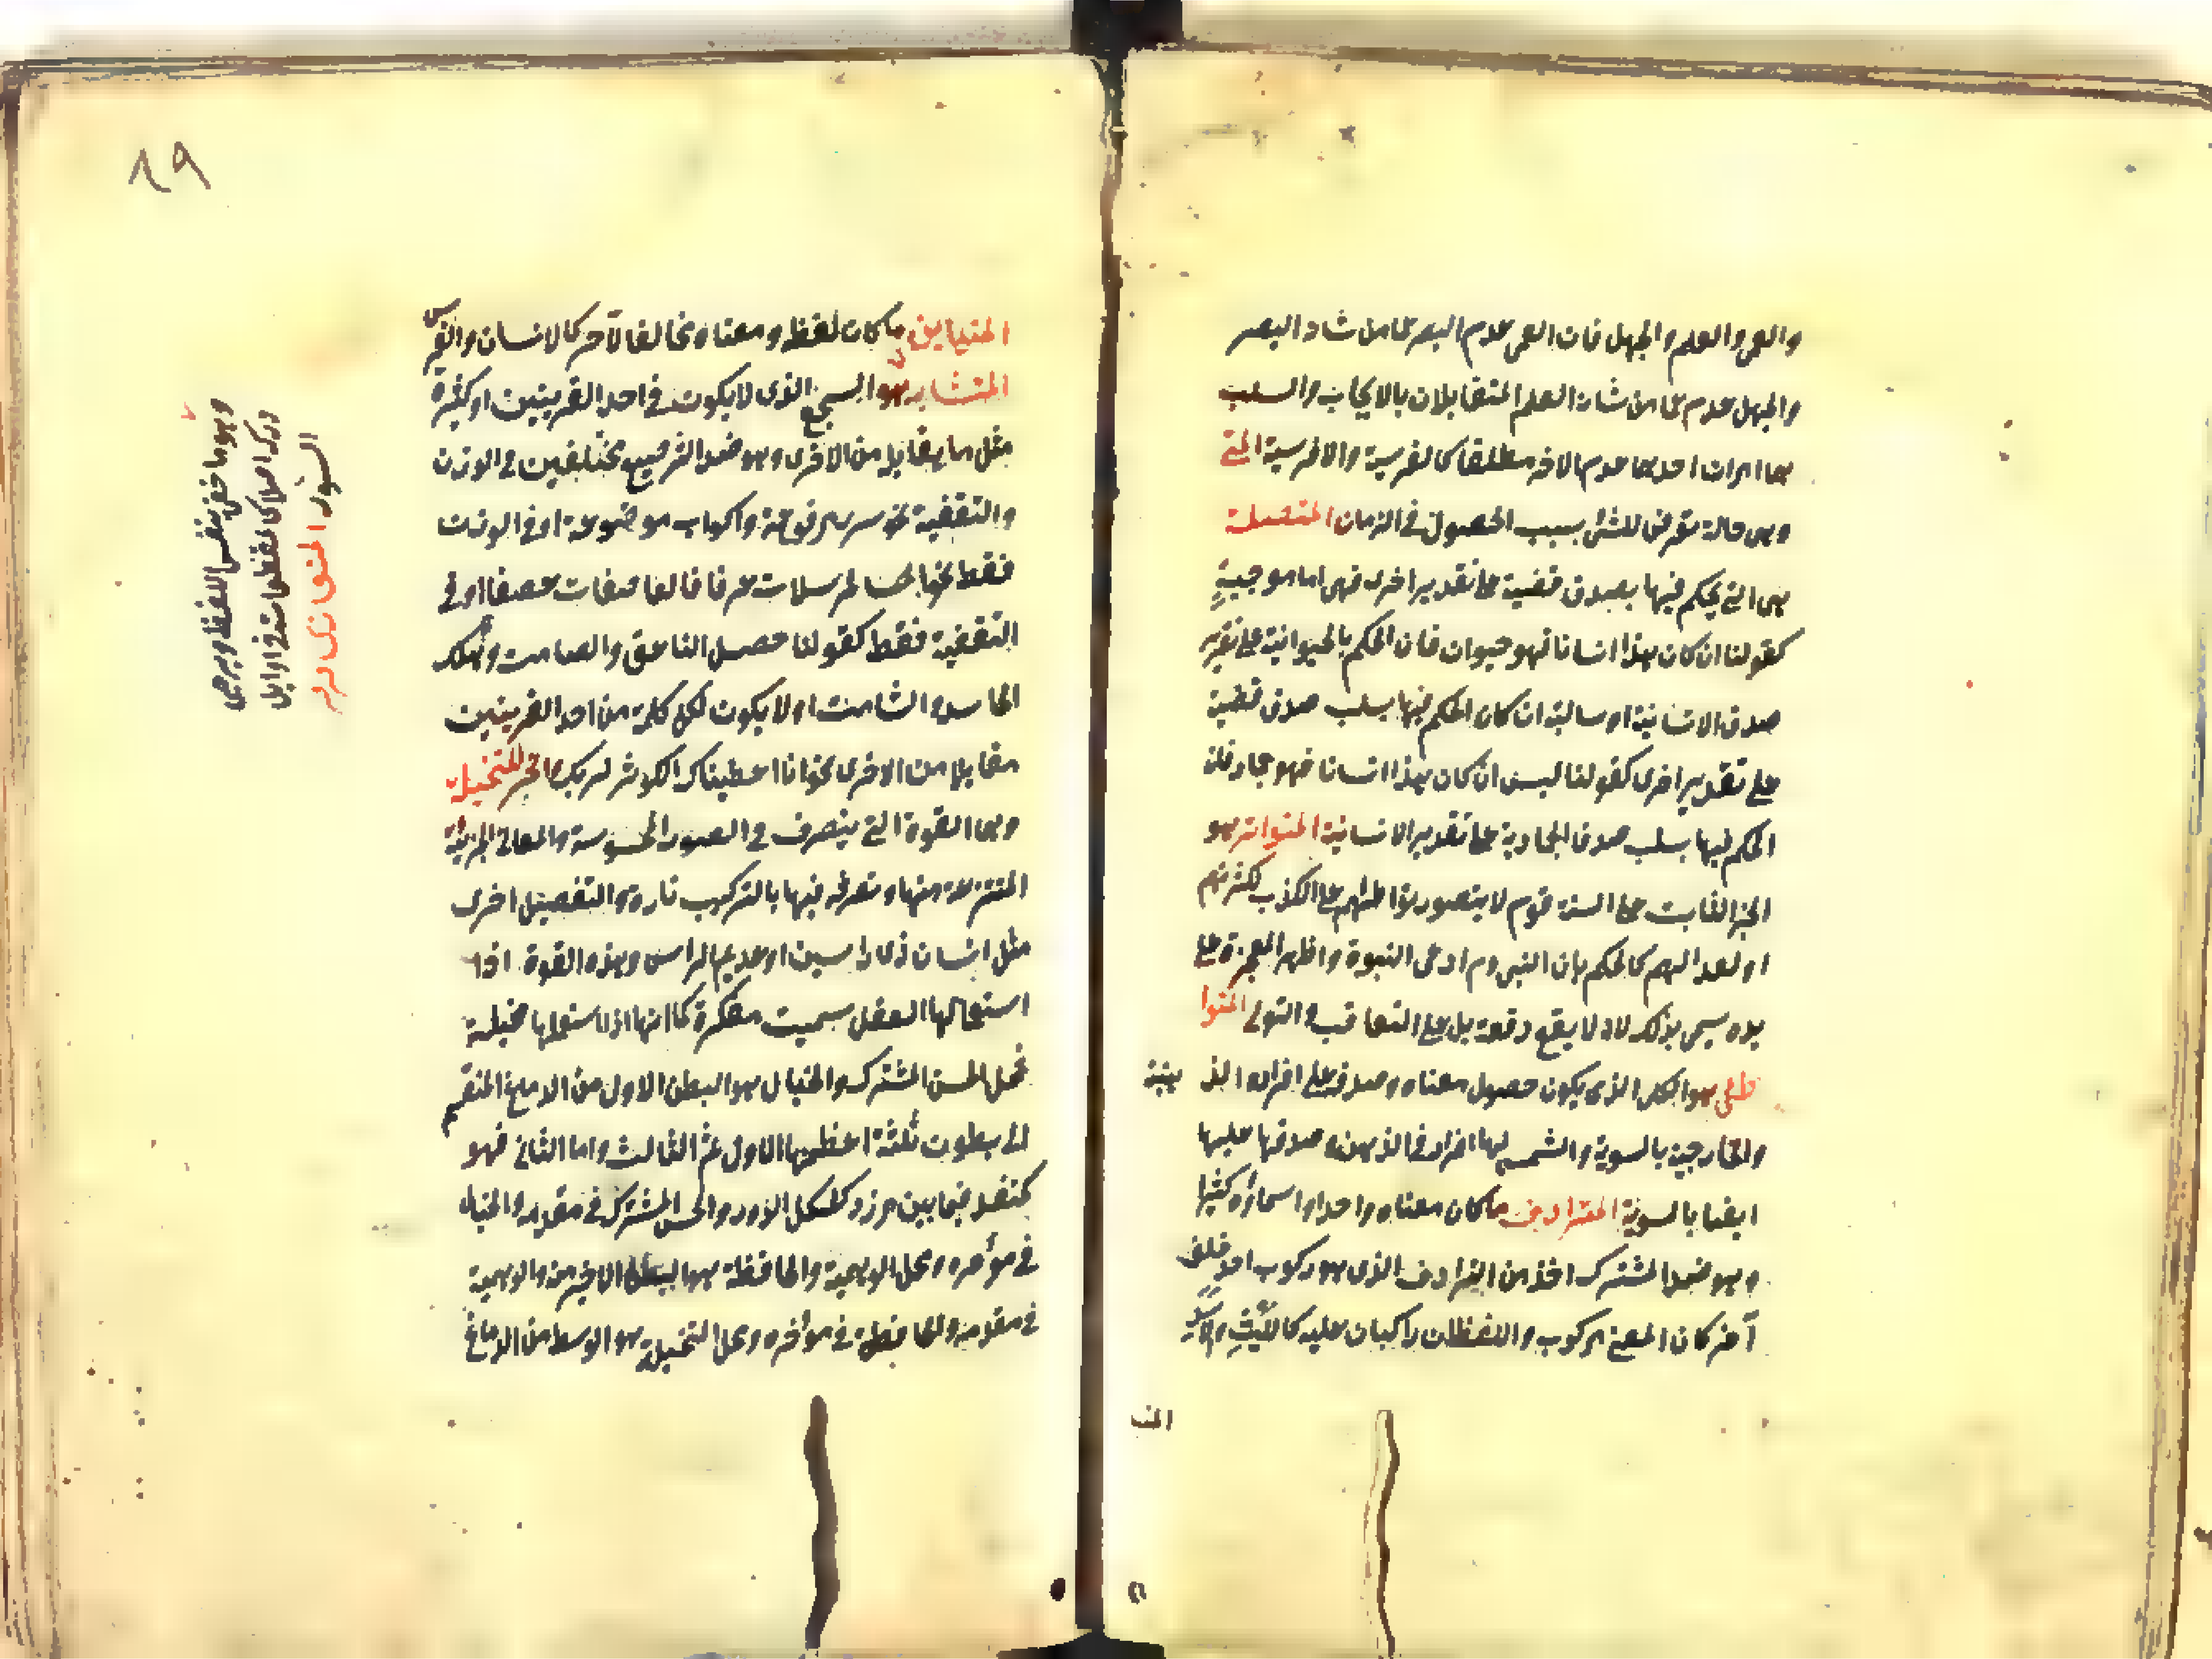 والعمى والعلم والجهل فان العمى عدم البصر عما من شانه البصر
والجهل عدم عما من شانه العلم المتقابلان بالايجاب والسلب
هما امران احدهما عدم الاخر مطلقا كالفرسية واللافرسية المتى
وهى حالة تعرض للشئ بسبب الحصول فى الزمان المتصلة
هى التى يحكم فيها بصدق قضية على تقدير اخرى فهى اما موجبة
كقولنا ان كان هذا انسانا فهو حيوان فان الحكم بالحيوانية على تقدير
صدق الانسانية او سالبة ان كان الحكم فيها بسلب صدق قضية
على تقدير اخرى كقولنا ليس ان كان هذا انسانا فهو جماد فان
الحكم فيها بسلب صدق الجمادية على تقدير الانسانية المتواتر هو
الخبر الثابت على السنة قوم لا يتصور تواطئهم على الكذب لكثرتهم
او لعدالتهم كالحكم بان النبى م ادعى النبوة واظهر المعجزة على
يده سمى بذلك لانه لا يقع دفعة بل على التعاقب والتوالى المتوا
طئى هو الكلى الذى يكون حصول معناه وصدقه على افراده الذ هنية
والخارجية بالسوية والشمس لها افراد فى الذهن وصدقها عليها
ايضا بالسوية المترادف ما كان معناه واحدا واسماؤه كثيرا
وهو ضد المشترك اخذ من الترادف الذى هو ركوب احد خلف
آخر كان المعنى مركوب واللفظان راكبان عليه كالليث والاسد
المتـ
٨٩
المتباين ما كان لفظه ومعناه مخالفا لآخر كالانسان والفرس
المتشابه هو السجع الذى لا يكون فى احد القرينتين او كثره
مثل ما يقابله من الاخرى وهو ضد الترصيع مختلفين فى الوزن
والتقفية نحو سرر مرفوعة واكواب موضوعة او فى الوزن
فقط نحو المرسلات عرفا فالعاصفات عصفا او فى
التقفية فقط كقولنا حصل الناطق والصامت وهلك
الحاسد والشامت او لا يكون لكل كلمة من احد القرينتين
مقابل من الاخرى نحو انا اعطيناك الكوثر لربك وانحر المتخيلة
وهى القوة التى يتصرف فى الصور المحسوسة والمعانى الجزئية
المنتزعة منها وتصرفه فيها بالتركيب تارة والتفصيل اخرى
مثل انسان ذى راسين او عديم الراس وهذه القوة اذا
استعمالها العقل سميت مفكرة كما انها اذا استعملها مخيلة
فمحل الحس المشترك والخيال هو البطن الاول من الدماغ المنقسم
الى بطون ثلثة اعظمها الاول ثم الثالث واما الثانى فهو
كمنفذ فيما بين مزرد كشكل الدود والحس المشترك فى مقدمه والخيال
فى مؤخره ومحل الوهمية والحافظة هو البطن الاخير منه والوهمية
فى مقدمه والحافظة فى مؤخره ومحل المتخيلة هو الوسط من الدماغ
وهو ما خفى بنفس اللفظ